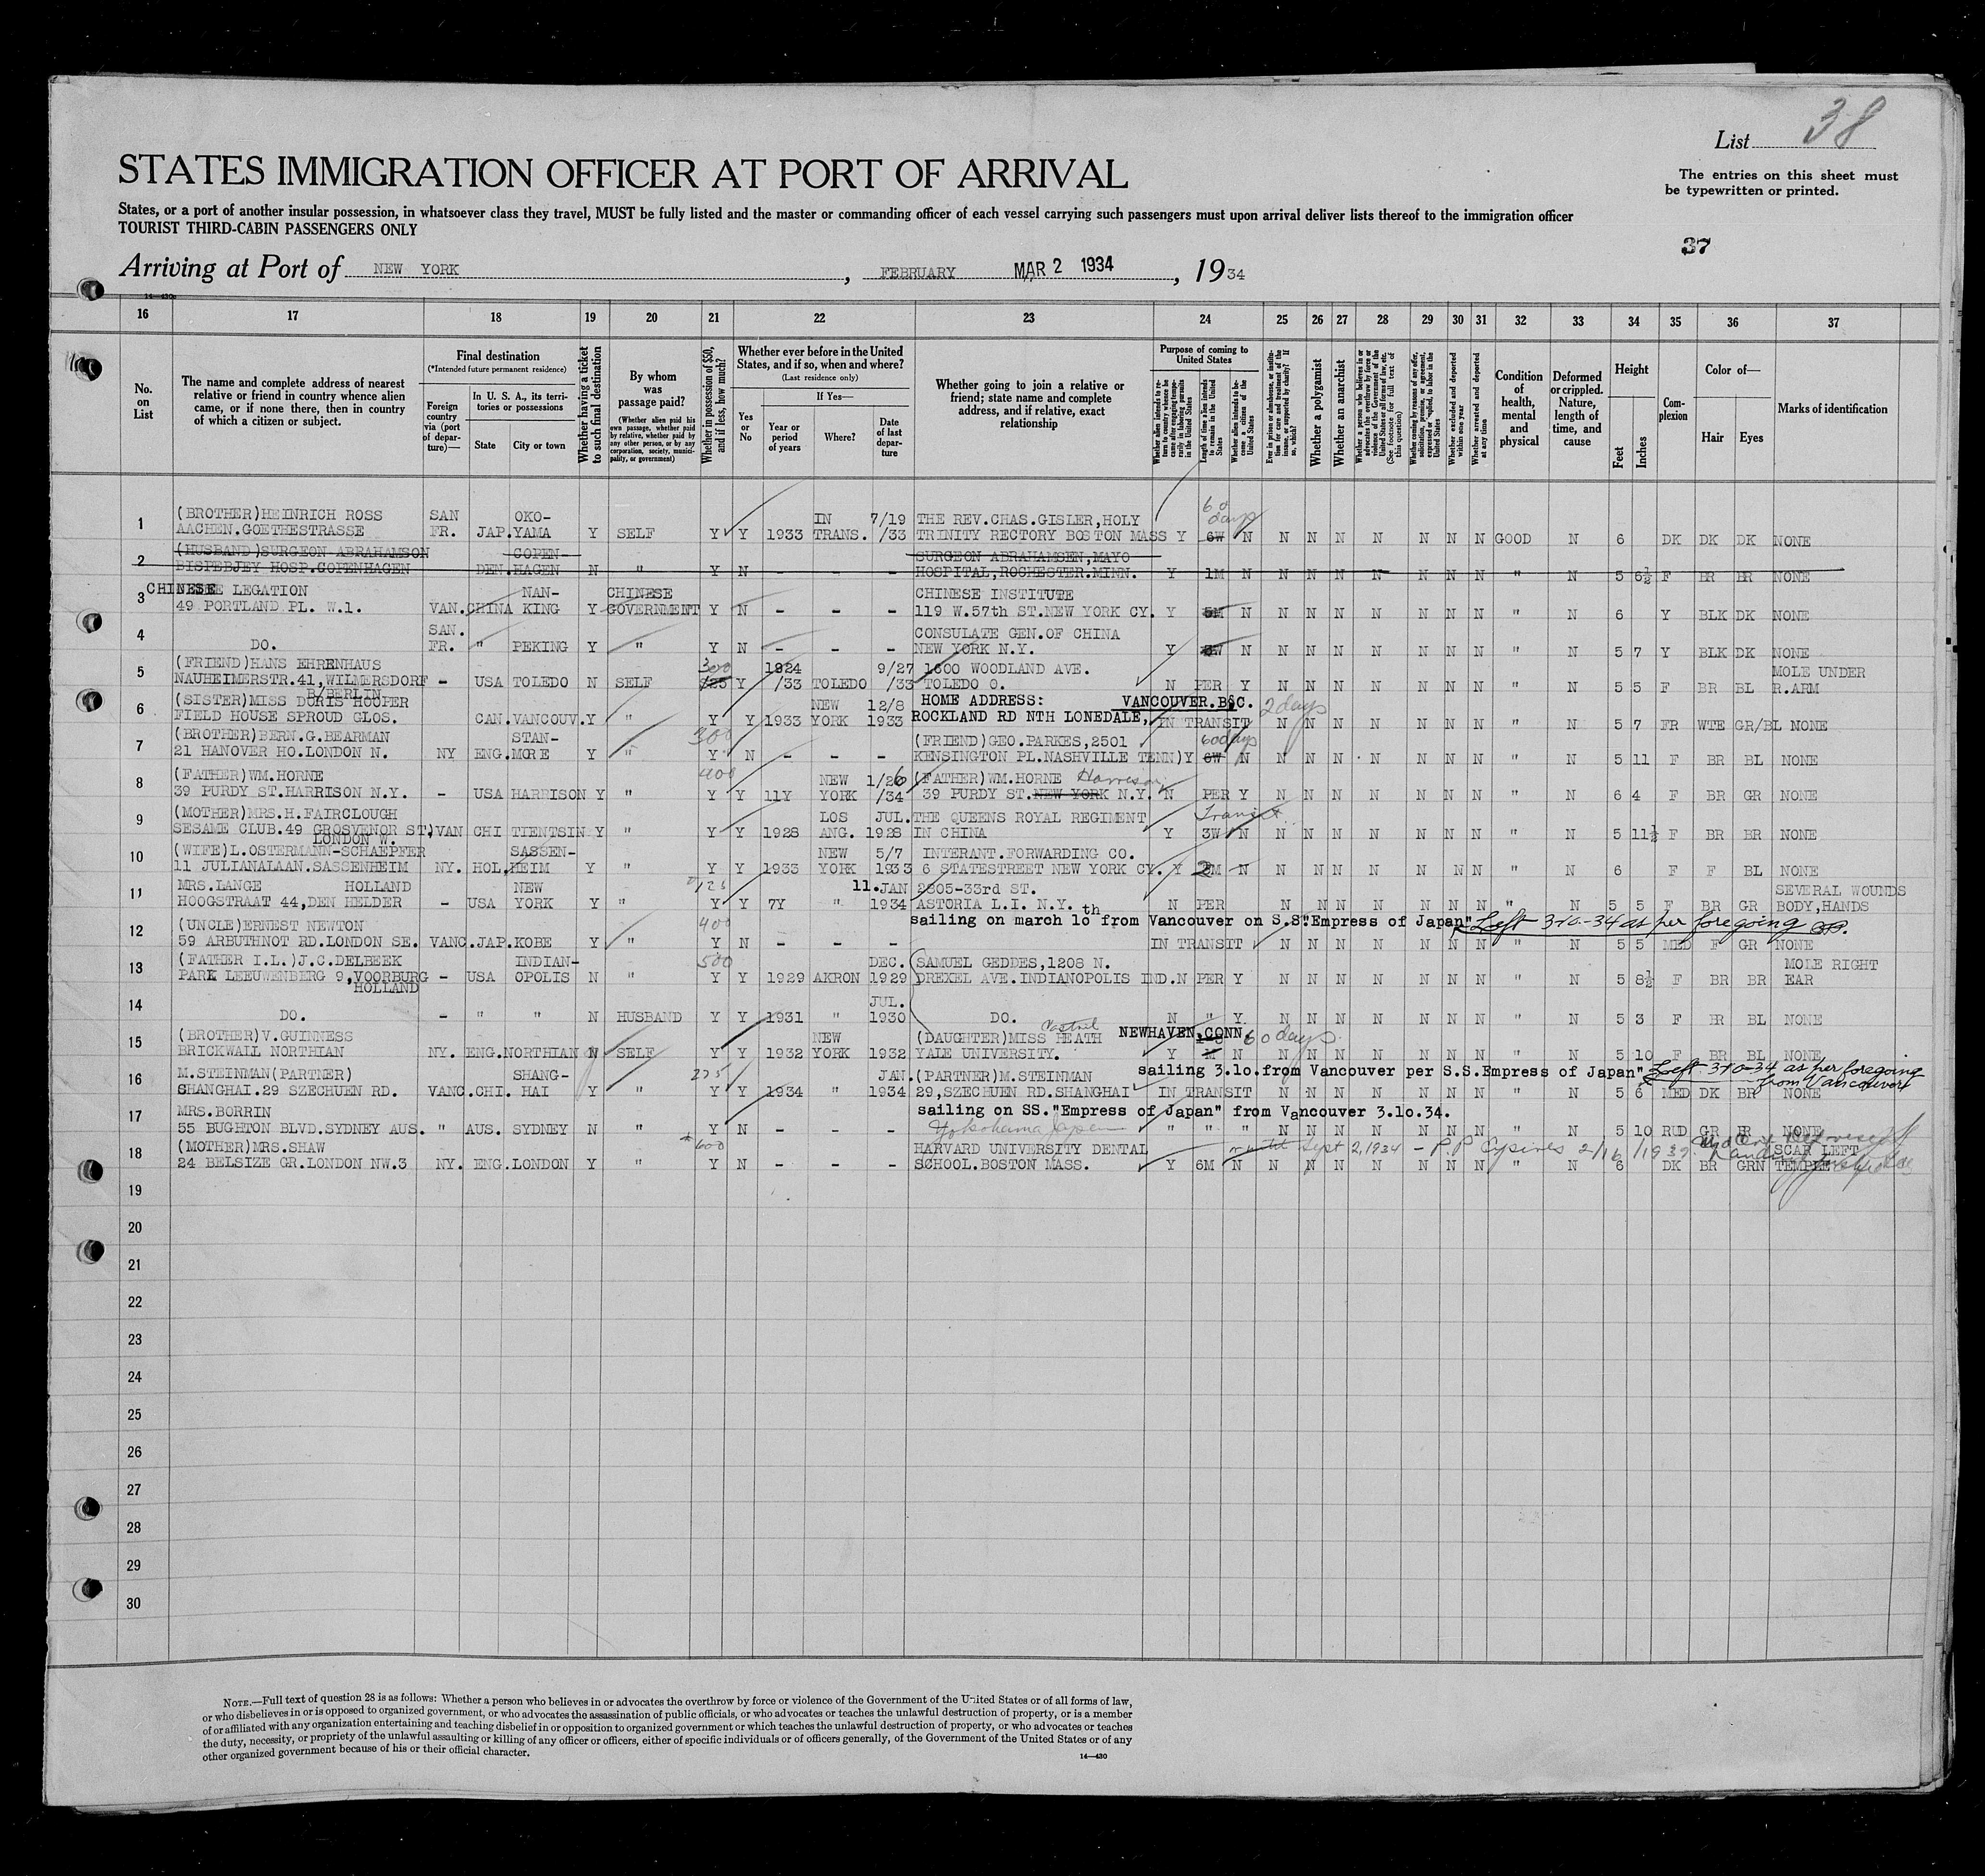 38
List
STATES IMMIGRATION OFFICER AT PORT OF ARRIVAL
The entries on this sheet must
be typewritten or printed.
States, or a port of another insular possession, in whatsoever class they travel, MUST be fully listed and the master or commanding officer of each vessel carrying such passengers must upon arrival deliver lists thereof to the immigration officer
TOURIST THIRD-CABIN PASSENGERS ONLY
37
Arriving at Port of NEW YORK, FEBRUARY MAR 2 1934, 1934
16 17 18 19 20 21 22 23 24 25 26 27 28 29 30 31 32 33 34 35 36 37
No. on List
The name and complete address of nearest relative or friend in country whence alien came, or if none there, then in country of which a citizen or subject.
Final destination
(*Intended future permanent residence)
Foreign country via (port of departure)—
In U. S. A., its territories or possessions
State
City or town
Whether having a ticket to such final destination
By whom was passage paid?
(Whether alien paid his own passage, whether paid by relative, whether paid by any other person, or by any corporation, society, municipality, or government)
Whether in possession of $50, and if less, how much?
Whether ever before in the United States, and if so, when and where?
(Last residence only)
Yes or No
If Yes—
Year or period of years
Where?
Date of last departure
Whether going to join a relative or friend; state name and complete address, and if relative, exact relationship
Purpose of coming to United States
Length of time alien intends to remain in the United States
Whether alien intends to become a citizen of the United States
Whether a polygamist
Whether an anarchist
Whether excluded and deported within one year
Whether arrested and deported at any time
Condition of health, mental and physical
Deformed or crippled. Nature, length of time, and cause
Height
Feet
Inches
Complexion
Color of—
Hair
Eyes
Marks of identification
1 (BROTHER)HEINRICH ROSS SAN OKO- IN 7/19 THE REV.CHAS.GISLER,HOLY 60 days
AACHEN.GOETHESTRASSE FR. JAP.YAMA Y SELF Y Y 1933 TRANS. /33 TRINITY RECTORY BOSTON MASS Y 6W N N N N N N N N GOOD N 6 DK DK DK NONE
2 (HUSBAND)SURGEON ABRAHAMSON COPEN- SURGEON ABRAHAMSEN,MAYO
BISPEBJEY HOSP.COPENHAGEN DEN.HAGEN N " Y N - - - HOSPITAL,ROCHESTER.MINN. Y 1M N N N N N N N N " N 5 6½ F BR BR NONE
3 CHINESE LEGATION NAN- CHINESE CHINESE INSTITUTE
49 PORTLAND PL. W.1. VAN.CHINA KING Y GOVERNMENT Y N - - - 119 W.57th ST.NEW YORK CY. Y N N N N N N N N " N 6 Y BLK DK NONE
4 SAN. CONSULATE GEN.OF CHINA
DO. FR. " PEKING Y " Y N - - - NEW YORK N.Y. Y N N N N N N N N " N 5 7 Y BLK DK NONE
5 (FRIEND)HANS EHRENHAUS 300 1924 9/27 1600 WOODLAND AVE. MOLE UNDER
NAUHEIMERSTR.41,WILMERSDORF - USA TOLEDO N SELF Y /33 TOLEDO /33 TOLEDO O. N PER Y N N N N N N N " N 5 5 F BR BL R.ARM
B/BERLIN
6 (SISTER)MISS DORIS HOOPER NEW 12/8 HOME ADDRESS: VANCOUVER.B.C. 2 days
FIELD HOUSE SPROUD GLOS. CAN.VANCOUV.Y " Y Y 1933 YORK 1933 ROCKLAND RD NTH LONEDALE, IN TRANSIT N N N N N N N " N 5 7 FR WTE GR/BL NONE
7 (BROTHER)BERN.G.BEARMAN STAN- 300 (FRIEND)GEO.PARKES,2501 60 days
21 HANOVER HO.LONDON N. NY ENG.MORE Y " Y N - - - KENSINGTON PL.NASHVILLE TENN)Y 6W N N N N N N N N " N 5 11 F BR BL NONE
8 (FATHER)WM.HORNE 400 NEW 1/26 (FATHER)WM.HORNE Harrison
39 PURDY ST.HARRISON N.Y. - USA HARRISON Y " Y Y 11Y YORK /34 39 PURDY ST.NEW YORK N.Y. N PER Y N N N N N N N " N 6 4 F BR GR NONE
9 (MOTHER)MRS.H.FAIRCLOUGH LOS JUL. THE QUEENS ROYAL REGIMENT Transit
SESAME CLUB.49 GROSVENOR ST)VAN CHI TIENTSIN Y " Y Y 1928 ANG. 1928 IN CHINA Y 3W N N N N N N N N " N 5 11½ F BR BR NONE
LONDON W.
10 (WIFE)L.OSTERMANN-SCHAEPFER SASSEN- NEW 5/7 INTERANT.FORWARDING CO.
11 JULIANALAAN.SASSENHEIM NY. HOL.HEIM Y " Y Y 1933 YORK 1933 6 STATESTREET NEW YORK CY. Y 2M N N N N N N N N " N 6 F F BL NONE
11 MRS.LANGE HOLLAND NEW 125 11.JAN 2805-33rd ST. SEVERAL WOUNDS
HOOGSTRAAT 44,DEN HELDER - USA YORK Y " Y Y 7Y " 1934 ASTORIA L.I. N.Y. N PER N N N N N N N " N 5 5 F BR GR BODY,HANDS
sailing on march 10th from Vancouver on S.S."Empress of Japan" Left 3-10-34 as per foregoing
12 (UNCLE)ERNEST NEWTON 400
59 ARBUTHNOT RD.LONDON SE. VANC.JAP.KOBE Y " Y N - - - IN TRANSIT N N N N N N N " N 5 5 MED F GR NONE
13 (FATHER I.L.)J.C.DELBEEK INDIAN- 500 DEC. SAMUEL GEDDES,1208 N. MOLE RIGHT
PARK LEEUWENBERG 9,VOORBURG - USA OPOLIS N " Y Y 1929 AKRON 1929 DREXEL AVE.INDIANOPOLIS IND.N PER Y N N N N N N N " N 5 8½ F BR BR EAR
HOLLAND
14 JUL.
DO. - " " N HUSBAND Y Y 1931 " 1930 DO. N " Y N N N N N N N " N 5 3 F BR BL NONE
15 (BROTHER)V.GUINNESS NEW (DAUGHTER)MISS HEATH NEWHAVEN,CONN. 60 days.
BRICKWALL NORTHIAN NY. ENG.NORTHIAN N SELF Y Y 1932 YORK 1932 YALE UNIVERSITY. Y N N N N N N N N " N 5 10 F BR BL NONE
sailing 3.10.from Vancouver per S.S.Empress of Japan". Left 3-10-34 as per foregoing from Vancouver
16 M.STEINMAN(PARTNER) SHANG- 225 JAN. (PARTNER)M.STEINMAN
SHANGHAI.29 SZECHUEN RD. VANC.CHI. HAI Y " Y Y 1934 " 1934 29,SZECHUEN RD.SHANGHAI IN TRANSIT N N N N N N N " N 5 6 MED DK BR NONE
17 MRS.BORRIN sailing on SS."Empress of Japan" from Vancouver 3.10.34.
55 BUGHTON BLVD.SYDNEY AUS. " AUS. SYDNEY N " Y N - - - Yokohama Japan " " " N N N N N N N " N 5 10 RUD GR NONE
18 (MOTHER)MRS.SHAW 600 HARVARD UNIVERSITY DENTAL until Sept 2, 1934 - P.P Expires 2/16/193 SCAR LEFT
24 BELSIZE GR.LONDON NW.3 NY. ENG.LONDON Y " Y N - - - SCHOOL.BOSTON MASS. Y 6M N N N N N N N N " N 6 DK BR GRN TEMPLE
19
20
21
22
23
24
25
26
27
28
29
30
NOTE.—Full text of question 28 is as follows: Whether a person who believes in or advocates the overthrow by force or violence of the Government of the United States or of all forms of law,
or who disbelieves in or is opposed to organized government, or who advocates the assassination of public officials, or who advocates or teaches the unlawful destruction of property, or is a member
of or affiliated with any organization entertaining and teaching disbelief in or opposition to organized government or which teaches the unlawful destruction of property, or who advocates or teaches
the duty, necessity, or propriety of the unlawful assaulting or killing of any officer or officers, either of specific individuals or of officers generally, of the Government of the United States or of any
other organized government because of his or their official character.
14—430